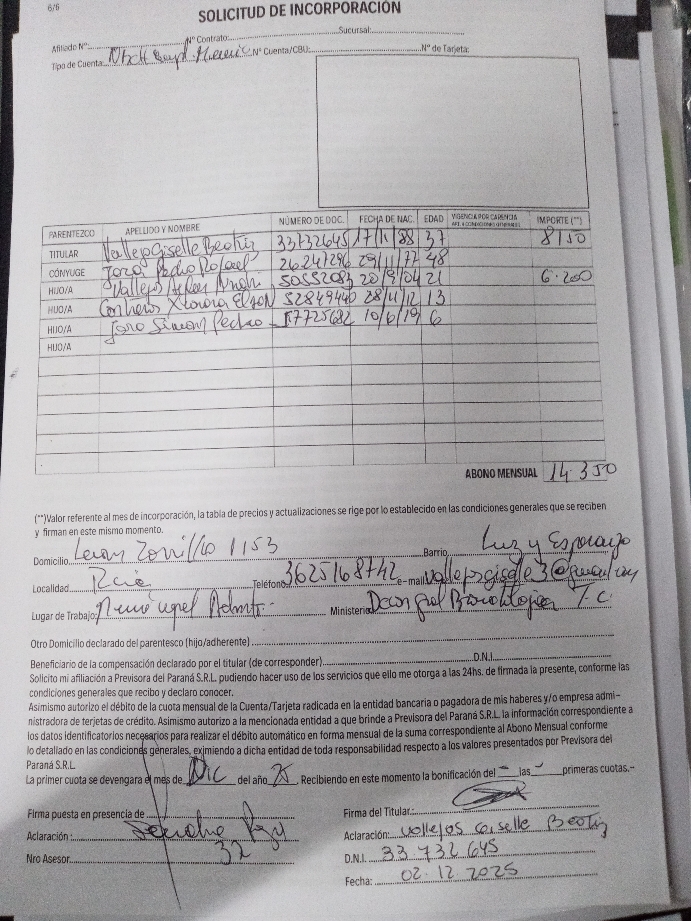 6/6
SOLICITUD DE INCORPORACIÓN
Afiliado Nº: Nº Contrato: Sucursal:
Tipo de Cuenta: Nº Cuenta/CBU: Nº de Tarjeta:
PARENTEZCO APELLIDO Y NOMBRE NÚMERO DE DOC. FECHA DE NAC. EDAD VIGENCIA POR CARENCIA IMPORTE (**)
TITULAR Vallejo Giselle Beatriz 33732645 17/11/88 37 8150
CÓNYUGE Pedro Rafael 26.247296 29/11/77 48
HIJO/A Vallejo 50552083 20/9/04 21 6.200
HIJO/A 52849440 28/11/12 13
HIJO/A Simon Pedro 57725682 10/6/19 6
HIJO/A
ABONO MENSUAL 14.350
(**)Valor referente al mes de incorporación, la tabla de precios y actualizaciones se rige por lo establecido en las condiciones generales que se reciben
y firman en este mismo momento.
Domicilio Leon Zorrilla 1153 Barrio Luz y Esperanza
Localidad Rcia Teléfono 3625168742 e-mail
Lugar de Trabajo: Ministerio
Otro Domicilio declarado del parentesco (hijo/adherente)
Beneficiario de la compensación declarado por el titular (de corresponder) D.N.I.
Solicito mi afiliación a Previsora del Paraná S.R.L. pudiendo hacer uso de los servicios que ello me otorga a las 24hs. de firmada la presente, conforme las
condiciones generales que recibo y declaro conocer.
Asimismo autorizo el débito de la cuota mensual de la Cuenta/Tarjeta radicada en la entidad bancaria o pagadora de mis haberes y/o empresa admi-
nistradora de terjetas de crédito. Asimismo autorizo a la mencionada entidad a que brinde a Previsora del Paraná S.R.L. la información correspondiente a
los datos identificatorios necesarios para realizar el débito automático en forma mensual de la suma correspondiente al Abono Mensual conforme
lo detallado en las condiciones generales, eximiendo a dicha entidad de toda responsabilidad respecto a los valores presentados por Previsora del
Paraná S.R.L
La primer cuota se devengara el mes de Dic del año 25. Recibiendo en este momento la bonificación del – las – primeras cuotas.-
Firma puesta en presencia de Firma del Titular:
Aclaración : Aclaración: Vallejos Giselle Beatriz
Nro Asesor 32 D.N.I. 33 732 645
Fecha: 02.12.2025